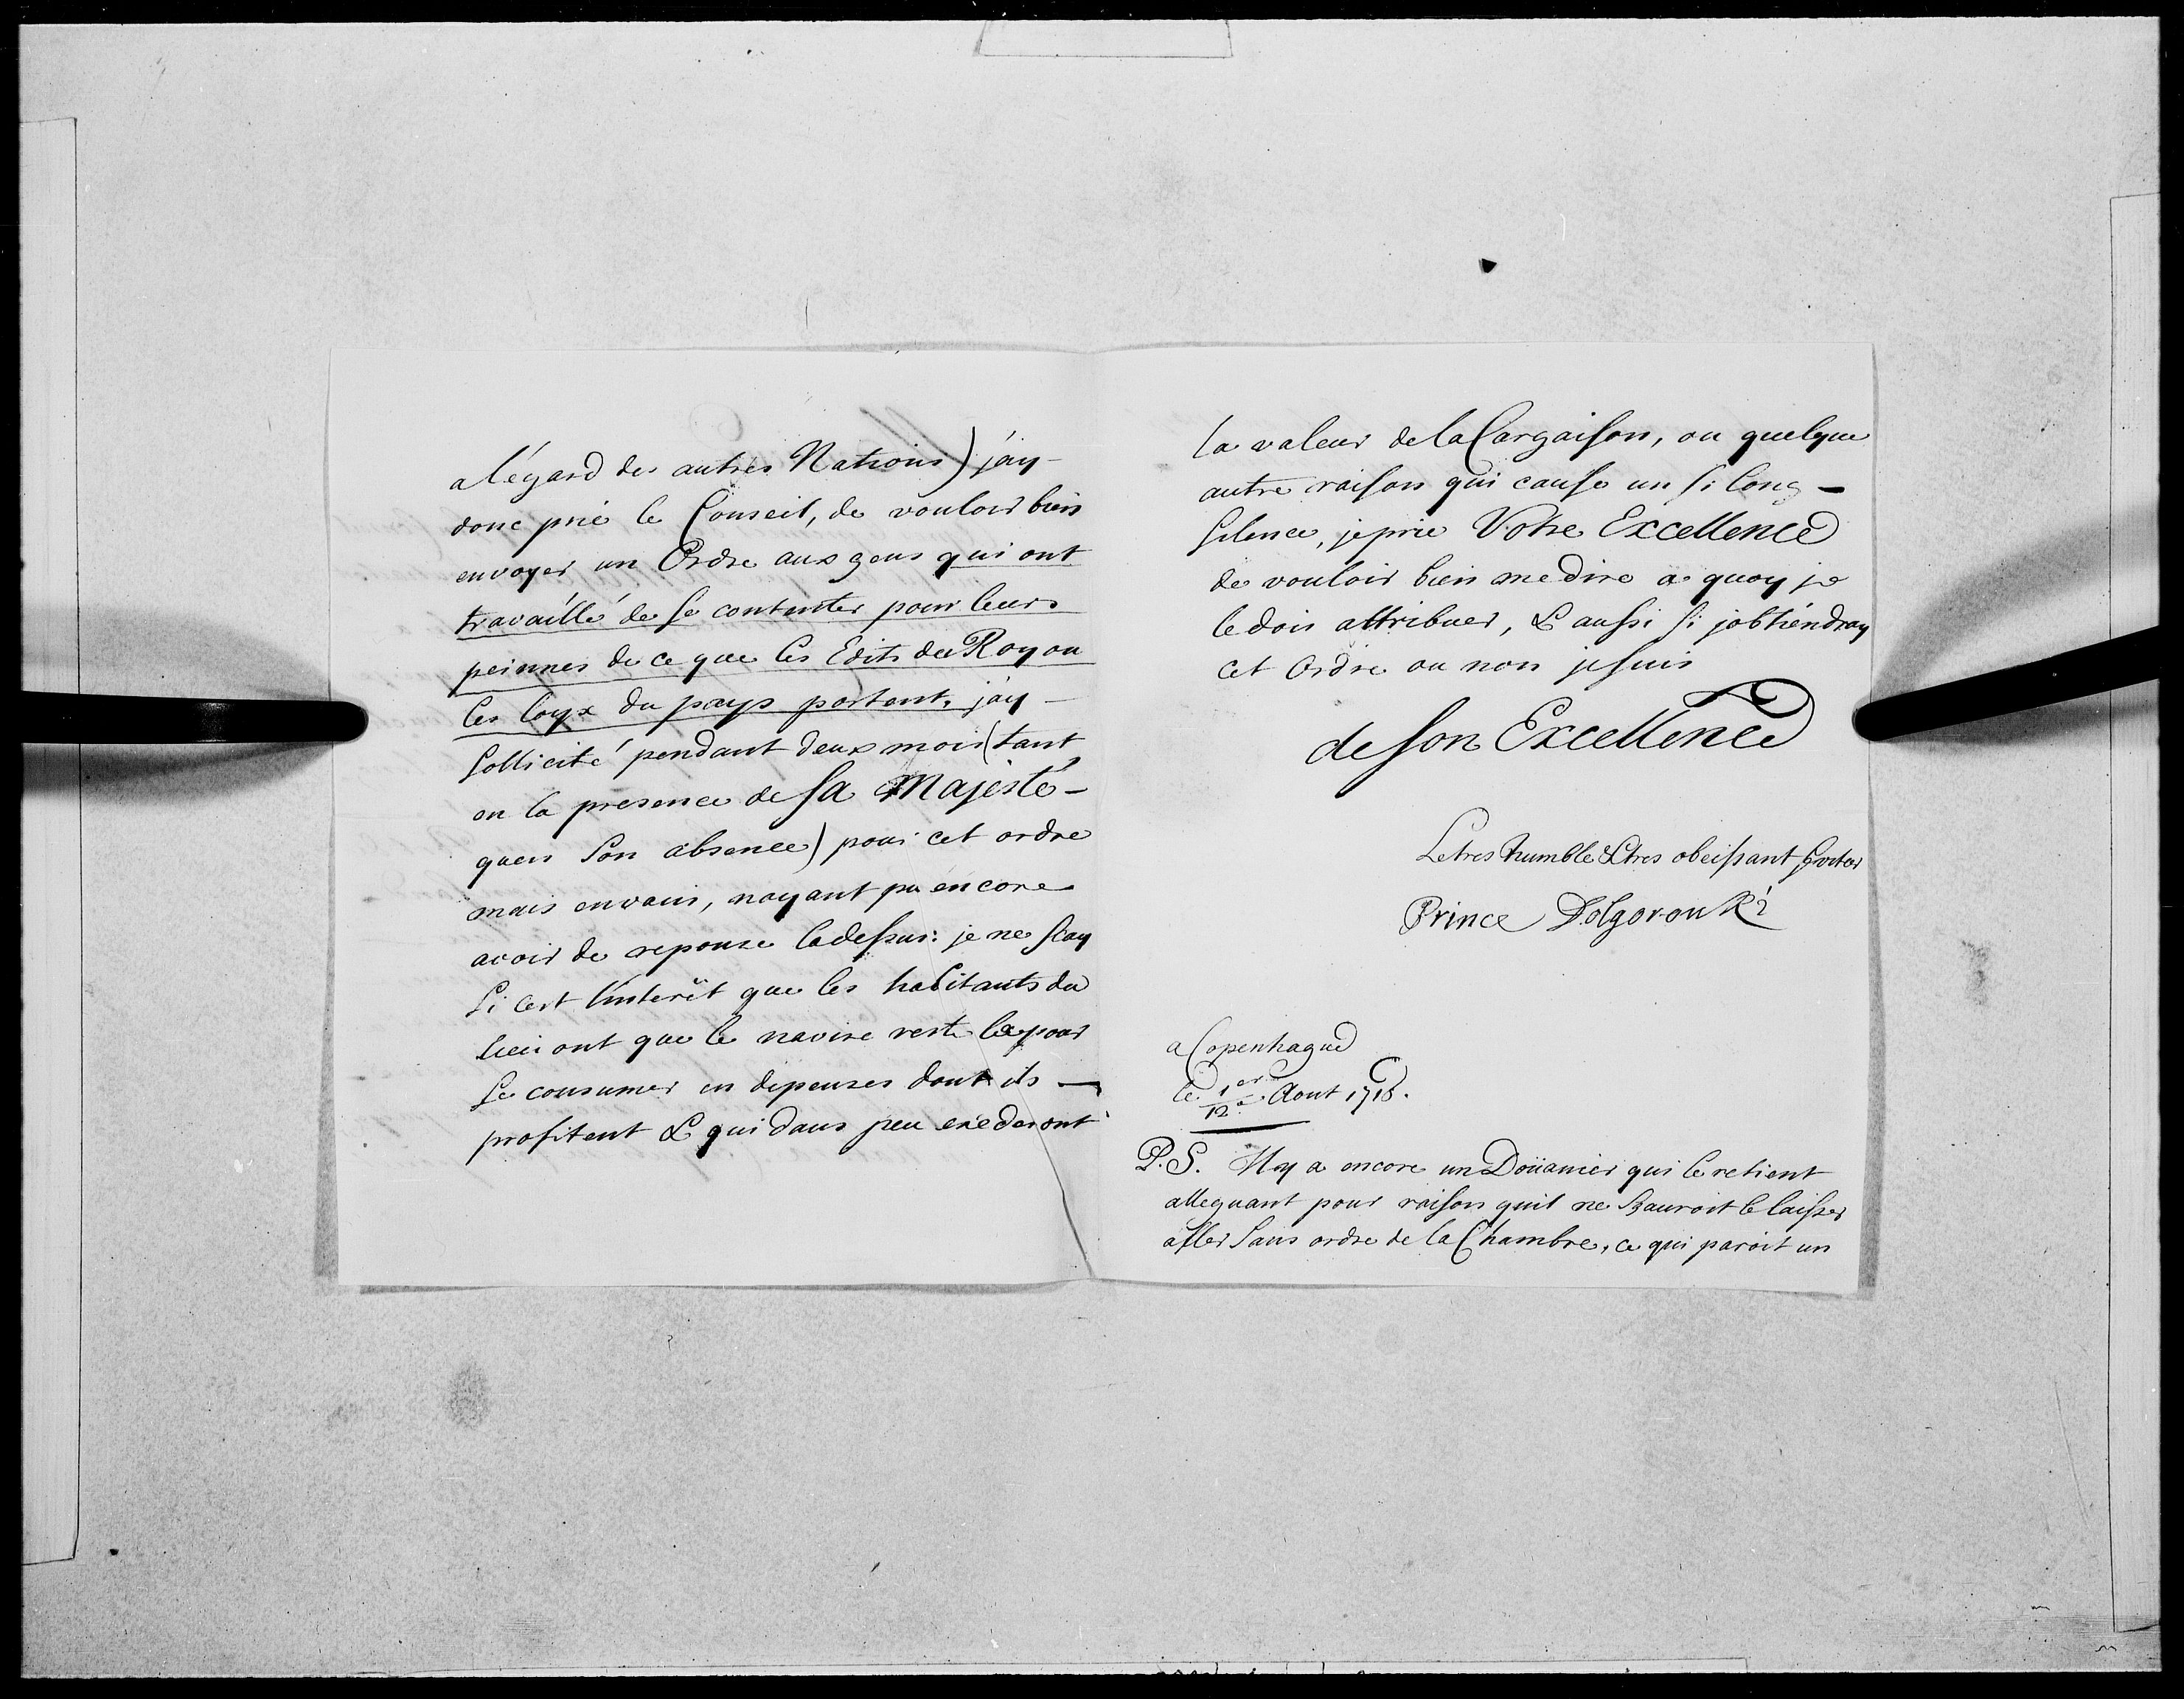 a l'égard des autres Nations) j'ay -
donc prié le Conseil, de vouloir bien
envoyer un Ordre aux gens qui ont
travaillé de se contenter pour leurs
peinnes de ce que les Edits du Roy ou
les loyx du pays portent, j'ay -
Sollicité pendant deux mois (tant
en la presence de Sa Majesté -
quen Son absence) pour cet ordre
mais envain, nayant pu encore
avoir de reponse ladessus: je ne scay
Si cest l'interêt que les habitants du
lieu ont que le navire reste la pour
Se consumer en depenses dont ils -
profitent & qui dans peu exederont
la valeur de la Cargaison, ou quelque
autre raison qui cause un si long -
Silence, je prie Votre Excellence
de vouloir bien me dire a quoy je
le dois attribuer, & aussi si jobtiendray
cet Ordre ou non je suis
de Son Excellence
Le tres humble & tres obeissant
Prince Dolgorouki
a Copenhague
le 1er/12e Aout 1718.
P.S. Il y a encore un Doüanier qui le retient
alleguant pour raison quil ne Sauroit le laisser
aller Sans ordre de la Chambre, ce qui paroit un